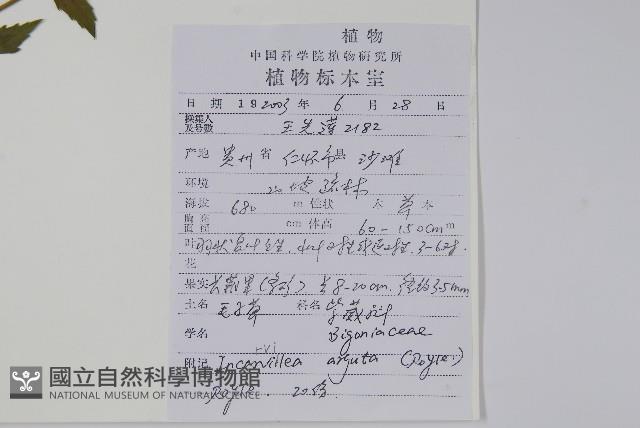 植物
中国科学院植物研究所
植物标本室
日期 19 2003 年 6 月 28 日
採集人
及号數 2182
产地 贵州 省 仁怀市 县 沙滩
环境 地疏林
海拔 680 m 性状 木 草 本
胸高
直径 cm 体高 60-150cm m
叶 羽状复叶互生, 3-6对.
花
果实 长蒴果 长8-20cm. 径约3.5mm
土名 毛子草 科名 紫葳科
学名 Bigoniaceae
rvi
附记 Incanvillea arguta (Royle)
Royle. 20份
國立自然科學博物館
NATIONAL MUSEUM OF NATURAL SCIENCE